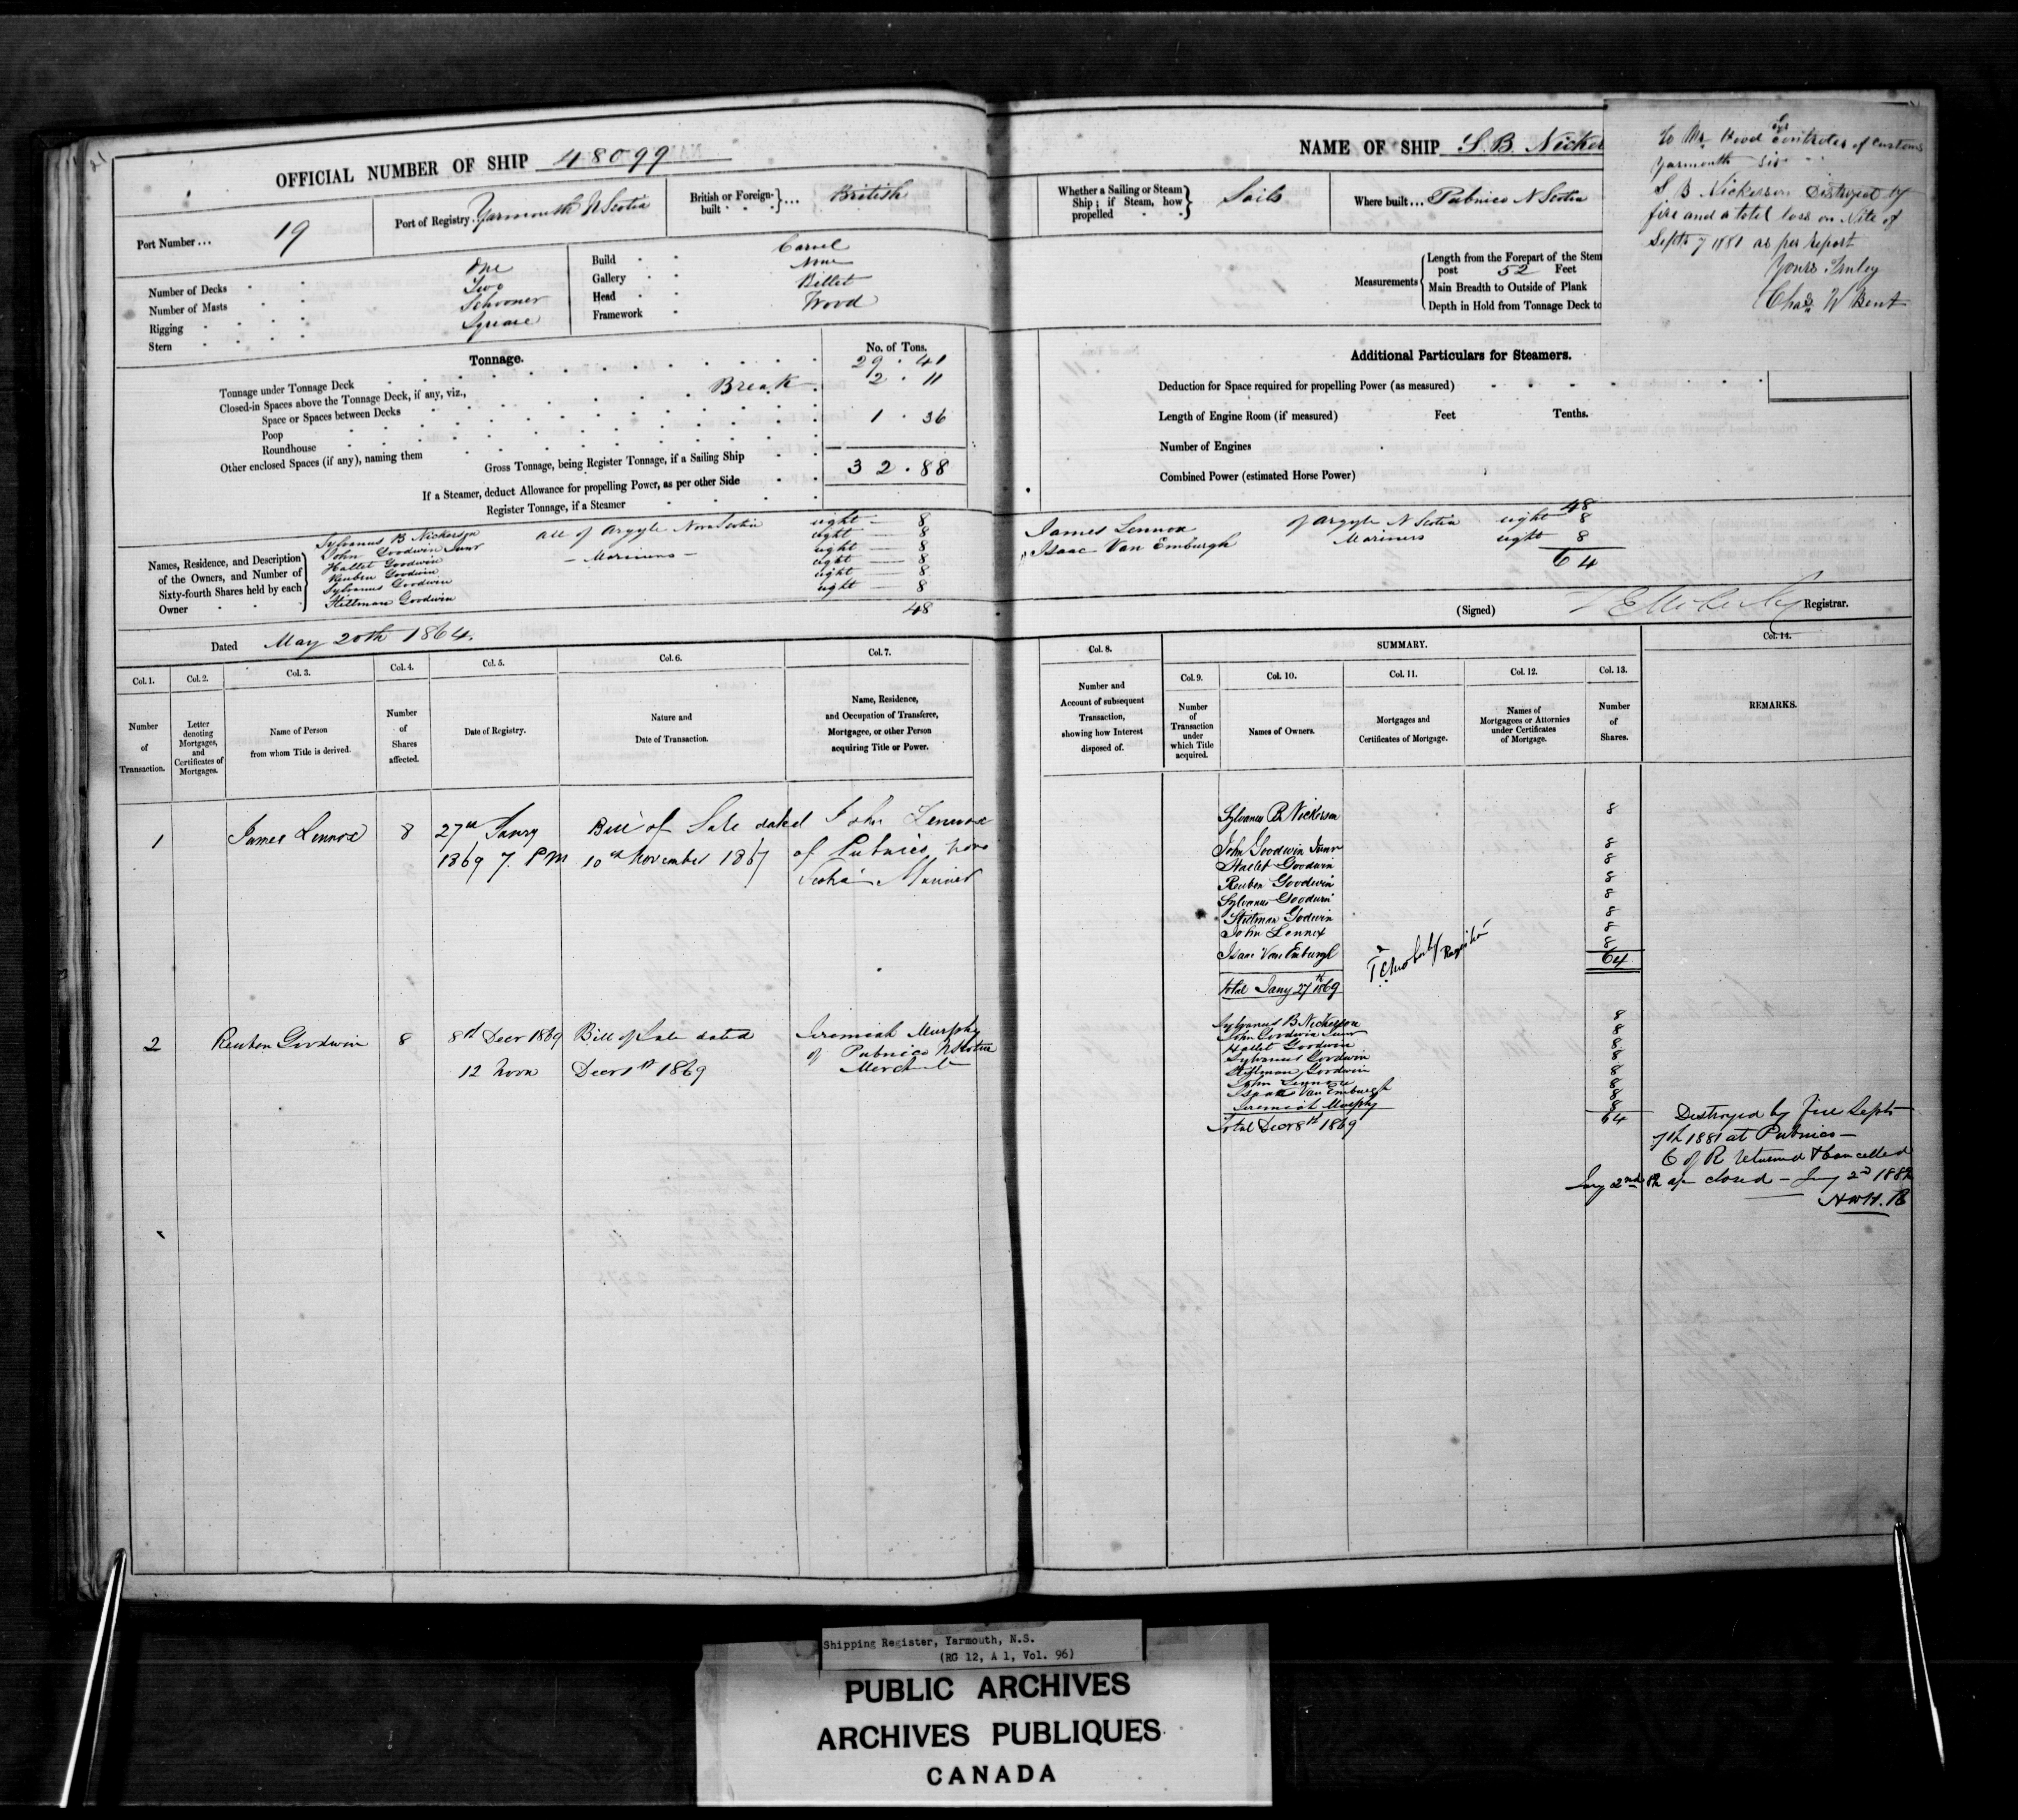 OFFICIAL NUMBER OF SHIP 48099
Port Number ... 19
Port of Registry. Yarmouth N Scotia
British or Foreign-built ... British
Number of Decks One
Number of Masts Two
Rigging Schooner
Stern Square
Build Carvel
Gallery None
Head Billet
Framework Wood
Tonnage.
No. of Tons.
Tonnage under Tonnage Deck 29 . 41
Closed-in Spaces above the Tonnage Deck, if any, viz., Break 2 . 11
Space or Spaces between Decks
Poop 1 . 36
Roundhouse
Other enclosed Spaces (if any), naming them
Gross Tonnage, being Register Tonnage, if a Sailing Ship 32.88
If a Steamer, deduct Allowance for propelling Power, as per other Side
Register Tonnage, if a Steamer
Names, Residence, and Description of the Owners, and Number of Sixty-fourth Shares held by each Owner
Sylvanus B Nickerson all of Argyle Nova Scotia eight 8
John Goodwin Junr eight 8
Hallet Goodwin - Mariners - eight 8
Reuben Goodwin eight 8
Sylvanus Goodwin eight 8
Stillman Goodwin eight 8
48
Dated May 20th 1864.
Col. 1.
Number of Transaction.
Col. 2.
Letter denoting Mortgages, and Certificates of Mortgages.
Col. 3.
Name of Person from whom Title is derived.
Col. 4.
Number of Shares affected.
Col. 5.
Date of Registry.
Col. 6.
Nature and Date of Transaction.
Col. 7.
Name, Residence, and Occupation of Transferee, Mortgagee, or other Person acquiring Title or Power.
1 James Lennox 8 27th Janry Bill of Sale dated John Lennox
1869 7. PM 10th November 1867 of Pubnico Nova
Scotia Mariner
2 Reuben Goodwin 8 8th Decr 1869 Bill of Sale dated Jeremiah Murphy
12 noon Decr 1st 1869 of Pubnico N Scotia
Merchant
NAME OF SHIP S.B. Nicker
Whether a Sailing or Steam Ship; if Steam, how propelled Sails
Where built ... Pubnico N Scotia
Measurements
Length from the Forepart of the Stem
post 52 Feet
Main Breadth to Outside of Plank
Depth in Hold from Tonnage Deck to
To Mr Hood Esq Controler of Customs
Yarmouth Sir
S B Nickerson Destroyed by
fire and a total loss on Nite of
Septr 7 1881 as per report
Yours Truley
Chas W Kent
Additional Particulars for Steamers.
Deduction for Space required for propelling Power (as measured)
Length of Engine Room (if measured) Feet Tenths.
Number of Engines
Combined Power (estimated Horse Power)
48
James Lennox of Argyle N Scotia eight 8
" Isaac Van Emburgh Mariners eight 8
64
(Signed) Registrar.
Col. 8.
Number and Account of subsequent Transaction, showing how Interest disposed of.
SUMMARY.
Col. 9.
Number of Transaction under which Title acquired.
Col. 10.
Names of Owners.
Col. 11.
Mortgages and Certificates of Mortgage.
Col. 12.
Names of Mortgagees or Attornies under Certificates of Mortgage.
Col. 13.
Number of Shares.
Col. 14.
REMARKS.
Sylvanus B Nickerson 8
John Goodwin Junr 8
Hallet Goodwin 8
Reuben Goodwin 8
Sylvanus Goodwin 8
Stillman Godwin 8
John Lennox 8
Isaac Van Emburgh 8
64
Total Jany 27th 1869
Registrar
Sylvanus B Nickerson 8
John Goodwin Junr 8
Hallet Goodwin 8
Sylvanus Goodwin 8
Stillman Goodwin 8
John Lennox 8
Isaac Van Emburgh 8
Jeremiah Murphy 8
Total Decr 8th 1869 64
Destroyed by fire Septr
7th 1881 at Pubnico -
C of R returned & Cancelled
Jany 2nd closed - Jany 2nd 1882
Shipping Register, Yarmouth, N.S.
(RG 12, A 1, Vol. 96)
PUBLIC ARCHIVES
ARCHIVES PUBLIQUES
CANADA